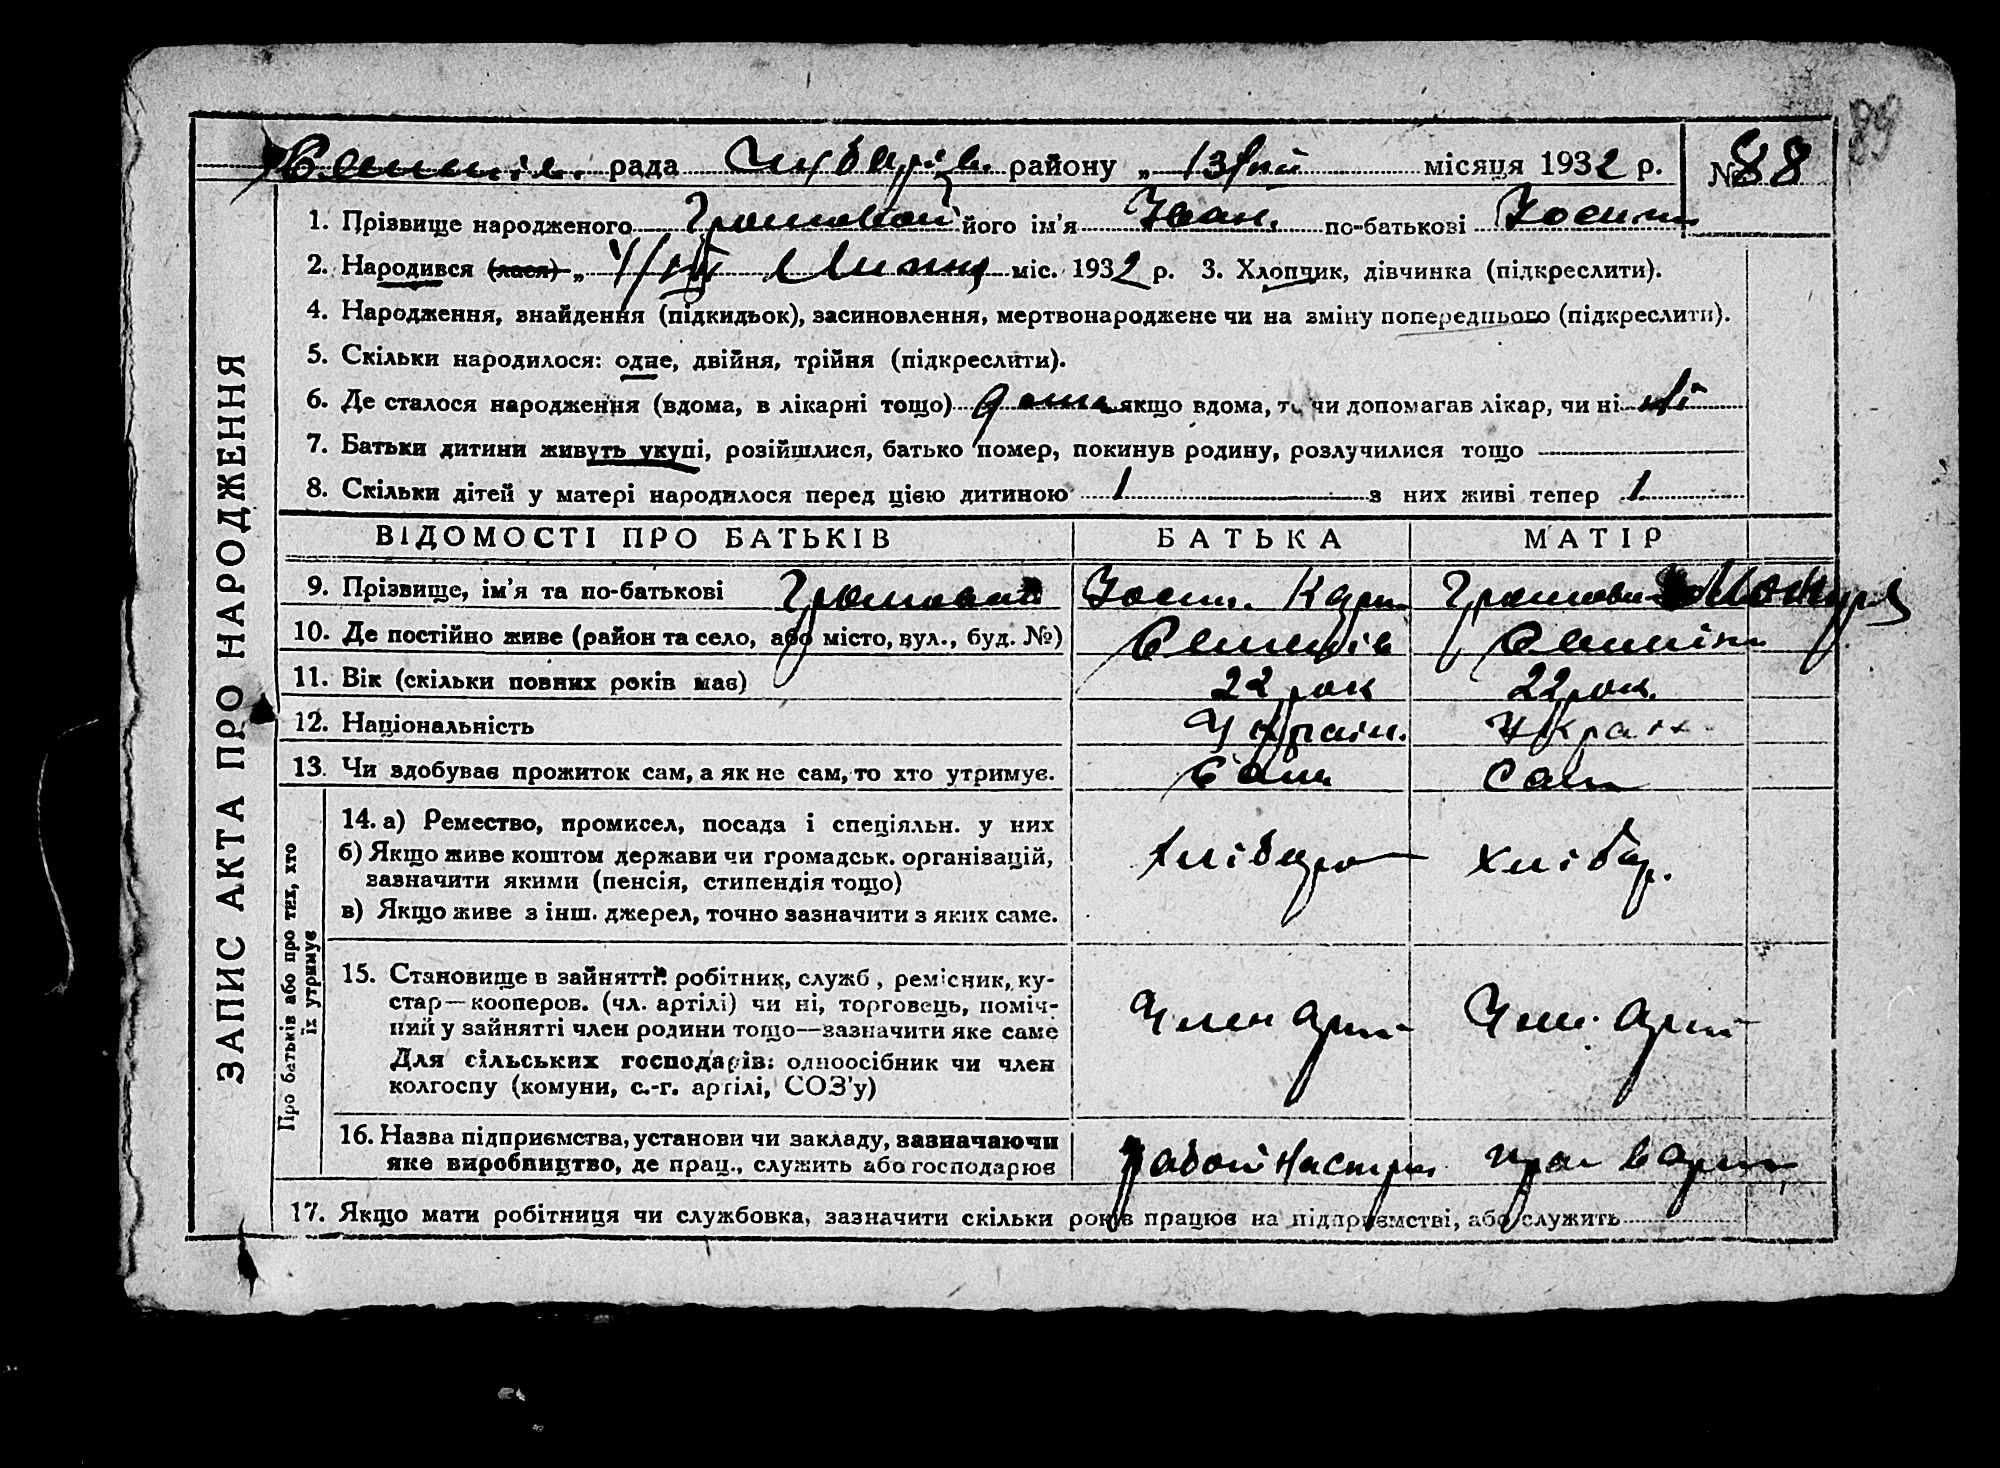 89
рада районy „ 13/VII місяця 1932 р. № 88
ЗАПИС АКТА ПРО НАРОДЖЕННЯ
1. Прізвище народженого Громовий його ім'я Іван. по-батькові Йосип
2. Народився (лася) „ 4/VII Липня міс. 1932 р. 3. Хлопчик, дівчинка (підкреслити).
4. Народження, знайдення (підкидьок), засиновлення, мертвонароджене чи на зміну попереднього (підкреслити).
5. Скільки народилося: одне, двійня, трійня (підкреслити).
6. Де сталося народження (вдома, в лікарні тощо) дома якщо вдома, то чи допомагав лікар, чи ні ні
7. Батьки дитини живуть укупі, розійшлися, батько помер, покинув родину, розлучилися тощо
8. Скільки дітей у матері народилося перед цією дитиною 1 з них живі тепер 1
ВІДОМОСТІ ПРО БАТЬКІВ БАТЬКА МАТІР
9. Прізвище, ім'я та по-батькові Громовий Йосип. Карп.
10. Де постійно живе (район та село, або місто, вул., буд. №)
11. Вік (скільки повних років має) 22 рок 22 рок.
12. Національність Україн. Украін.
13. Чи здобуває прожиток сам, а як не сам, то хто утримує. Сам Сам
Про батьків або про тих, хто їх утримує
14. а) Ремество, промисел, посада і спеціяльн. у них
б) Якщо живе коштом держави чи громадськ. організацій,
зазначити якими (пенсія, стипендія тощо)
в) Якщо живе з інш. джерел, точно зазначити з яких саме.
Хлібороб Хлібор.
15. Становище в зайнятті: робітник, служб, ремісник, ку-
стар—кооперов. (чл. артілі) чи ні, торговець, поміч-
ний у зайнятті член родини тощо—зазначити яке саме
Для сільських господарів: одноосібник чи член
колгоспу (комуни, с.-г. артілі, СОЗ'у)
Член артіл Член. артіл
16. Назва підприємства, установи чи закладу, зазначаючи
яке виробництво, де прац., служить або господарює
17. Якщо мати робітниця чи службовка, зазначити скільки років працює на підприємстві, або служить